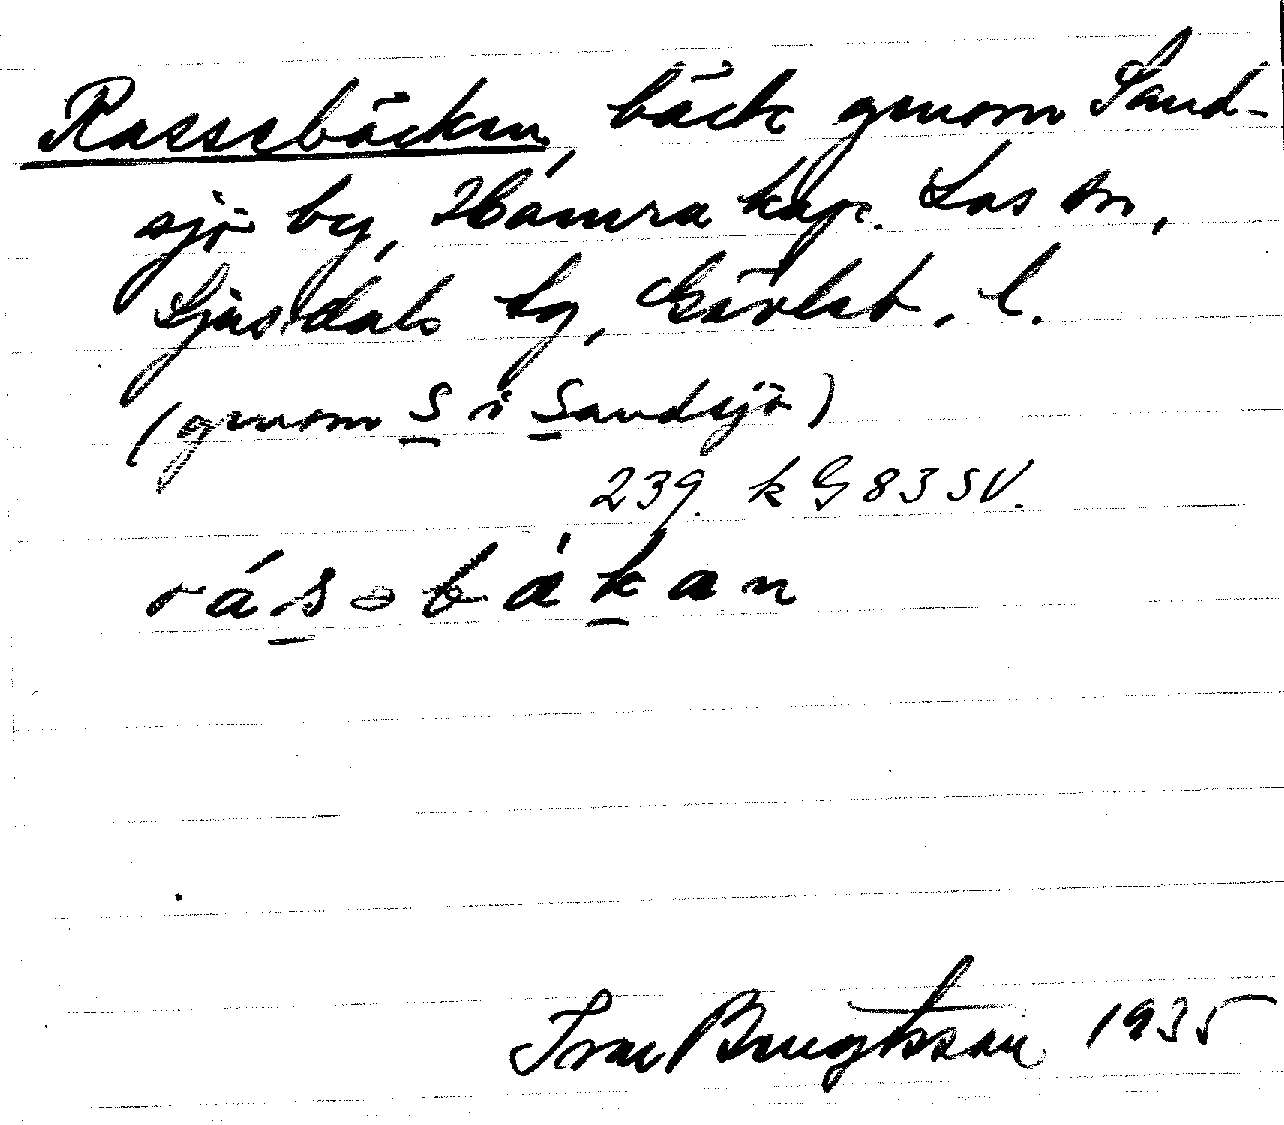 Rassebäcken, bäck genom Sand-
sjö by, Hamra kap. Los sn,
Ljusdals tg, Gävleb. l.
(genom S i Sandsjö)
239. k G 83 SV.
rásəbákan
Ivar Bengtsson 1935